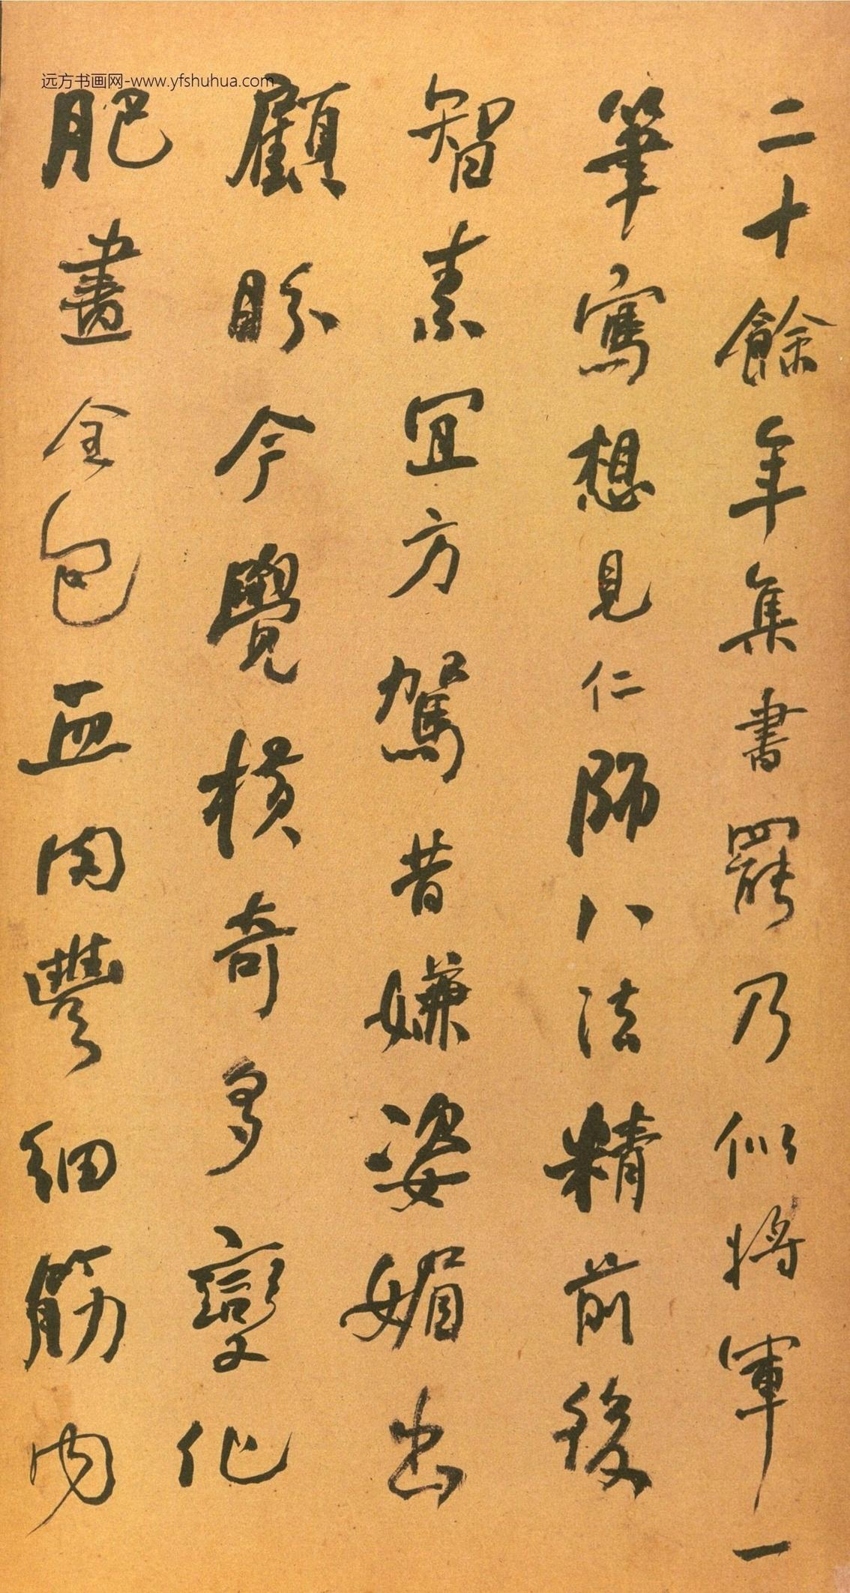 远方书画网-www.yfshuhua.com
二十餘年集書罷乃似將軍一
筆寫想見仁師八法精前後
智素宜方駕昔嫌姿媚出
顧盼今覺橫奇多變化
肥畫全包血肉豐細筋内